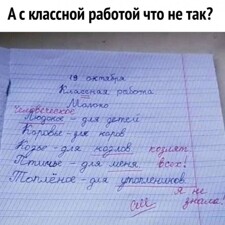 А с классной работой что не так?
19 октября
Классная работа
Молоко
Человеческое
Людское - для детей
Коровье - для коров
Козье - для козлов козлят
Птичье - для меня всех!
Топлёное - для утопленников
Я не
знала!
См